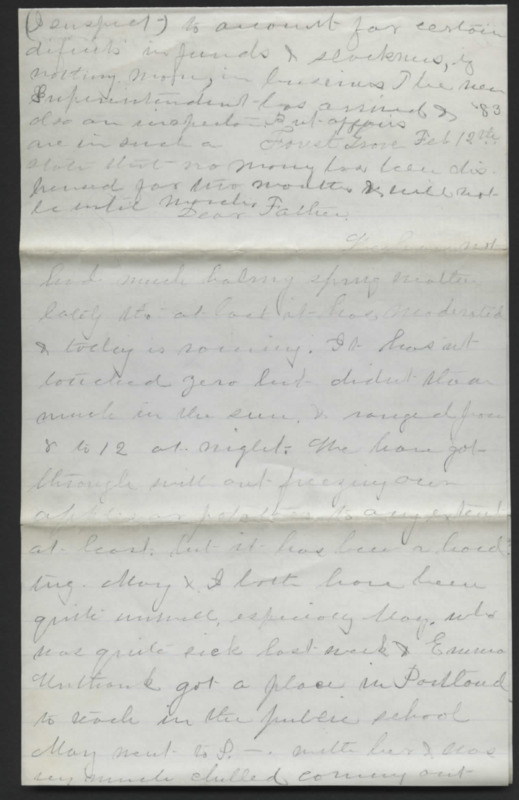 (I suspect) to account for certain
deficits in funds & slackness, &
nothing more, in business. The new
Superintendent has arrived & '83
also an inspector. But affairs
are in such a Forest Grove Feb 12th
state that no money has been dis
bursed for two months & will not
be until March.
Dear Father,
We have not
had much balmy spring weather
lately tho at last it has moderated
& today is raining. It hasnt
touched zero but didnt thaw
much in the sun, & ranged from
8 to 12 at night. We have got
through without freezing our
apples or potatoes to any extent
at least, but it has been a hard
time. May & I both have been
quite unwell, especially May, who
was quite sick last week & Emma
Unthank got a place in Portland
to teach in the public school
May went to P— with her & was
very much chilled coming out